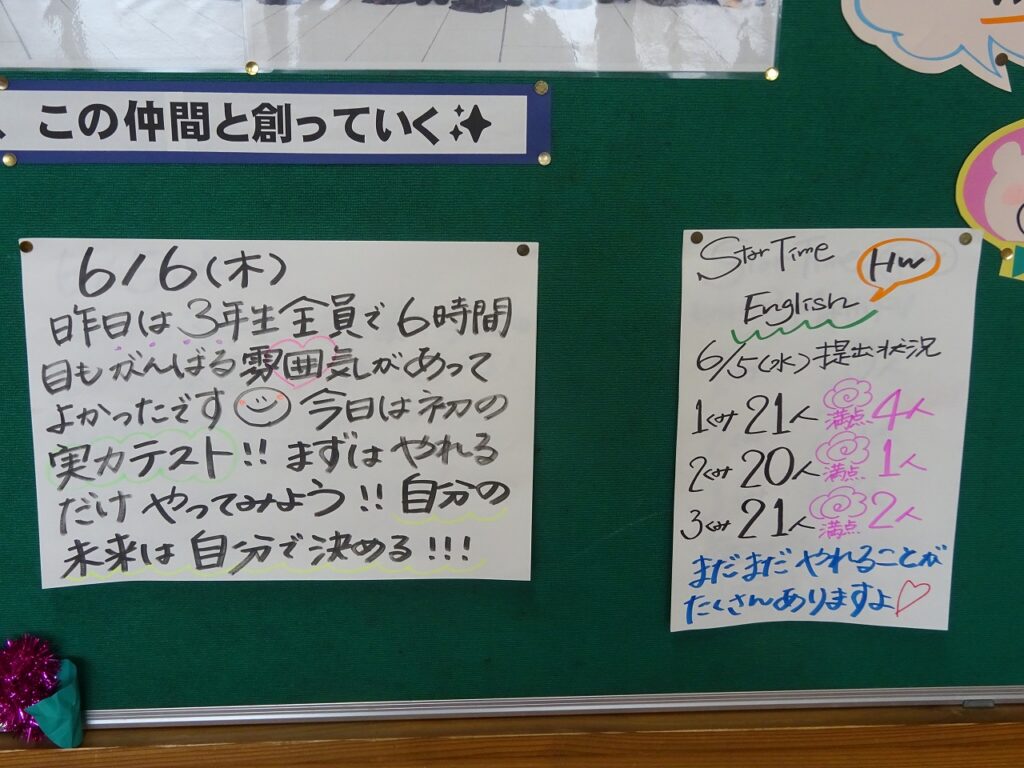 、この仲間と創っていく
6/6(木)
昨日は3年生全員で6時間
目もがんばる雰囲気があって
よかったです 今日は初の
実力テスト!! まずはやれる
だけやってみよう!! 自分の
未来は自分で決める!!!
Star Time
HW
English
6/5(水)提出状況
1くみ21人 満点4人
2くみ20人 満点1人
3くみ21人 満点2人
まだまだやれることが
たくさんありますよ♡